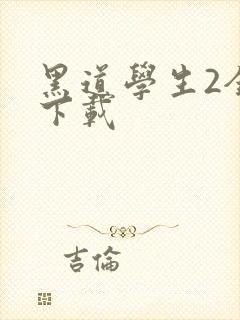 黑道學生2全
下載
吉倫